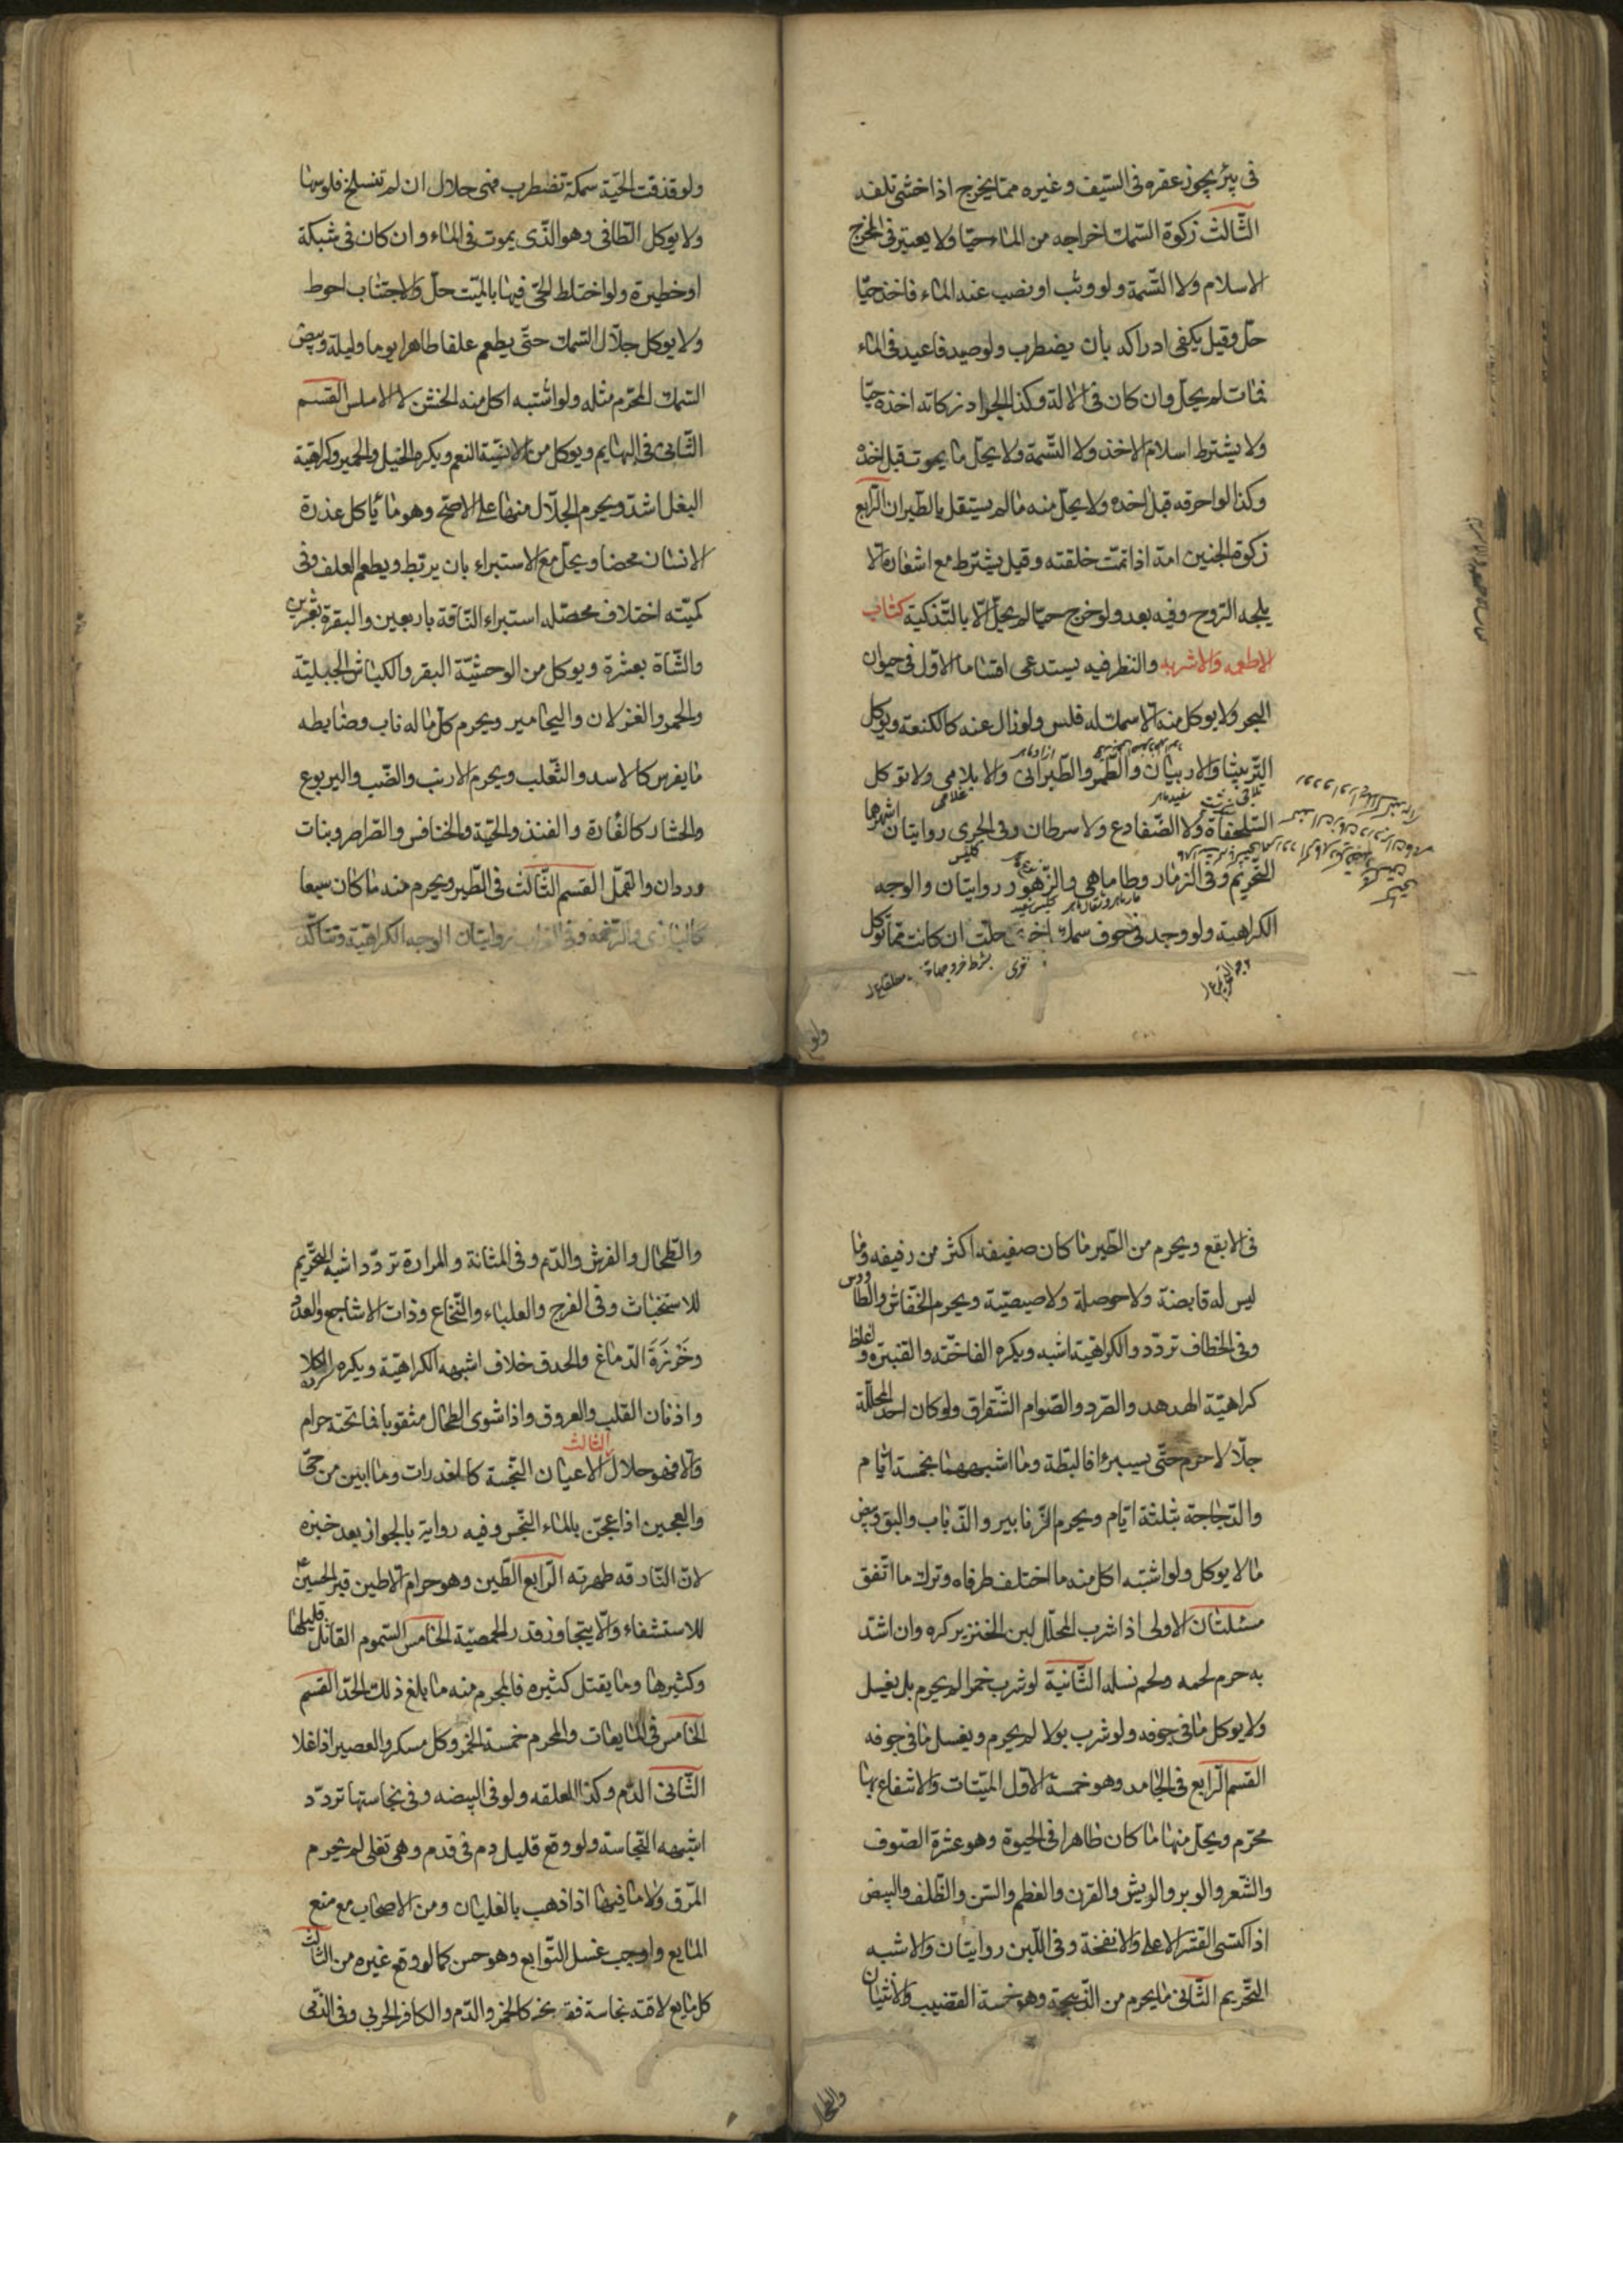 فى بئر يجوز عقره فى السيف و غيره مما يخرج اذا خشى تلفه
الثالث زكوة السمك اخراجه من الماء حيا ولا يعتبر فى المخرج
الاسلام ولا التسمية ولو وثب او نضب عنه الماء فاخذ حيا
حل وقيل يكفى ادراكه بان يضطرب ولو صيد فاعيد فى الماء
فمات لم يحل وان كان فى الالة وكذا الجراد زكاته اخذه حيا
ولا يشترط اسلام الاخذ ولا التسمية ولا يحل ما يموت قبل اخذه
وكذا لو احرقه قبل اخذه ولا يحل منه ما لم يستقل بالطيران الرابع
زكوة الجنين امه اذا تمت خلقته وقيل يشترط مع اشعاره الا
يلجه الروح وفيه بعد ولو خرج حيا لم يحل الا بالتذكية كتاب
الاطعمه والاشربه والنظر فيه يستدعى اقساما الاول فى حيوان
البحر ولا يوكل منه الا سمك له فلس ولو زال عنه كالكنعة ويوكل
الربيثا والاربيان والطمر والطبرانى والابلامى ولا توكل
السلحفاة ولا الضفادع ولا سرطان وفى الجرى روايتان اشهرهما
التحريم وفى الزمار وطا ماهى والزهو روايتان والوجه
الكراهية ولو وجد فى جوف سمك اخرى حلت ان كانت مما توكل
ولو
ولو قذفت الحية سمكة تضطرب فهى حلال ان لم تنسلخ فلوسها
ولا يوكل الطافى وهو الذى يموت فى الماء وان كان فى شبكة
او خطيرة ولو اختلط الحى فيها بالميت حل والاجتناب احوط
ولا يوكل جلال السمك حتى يطعم علفا طاهرا يوما وليلة وبيض
السمك المحرم مثله ولو اشتبه اكل منه الخشن لا الاملس القسم
الثانى فى البهايم ويوكل من الانسية النعم ويكره الخيل والحمير وكراهية
البغل اشد ويحرم الجلال منها على الاصح وهو ما ياكل عذرة
الانسان محضا ويحل مع الاستبراء بان يرتبط ويطعم العلف وفى
كميته اختلاف محصله استبراء الناقة باربعين والبقرة بعشرين
والشاة بعشرة ويوكل من الوحشية البقر والكباش الجبلية
والحمر والغزلان واليحامير ويحرم كل ما له ناب وضابطه
ما يفرس كالاسد والثعلب ويحرم الارنب والضب واليربوع
والحشار كالفارة والقنفذ والحية والخنافس والصراصر وبنات
وردان والقمل القسم الثالث فى الطير ويحرم منه ما كان سبعا
كالبازى والرخمة وفى الغراب روايتان الوجه الكراهية وتتاكد
فى الابقع ويحرم من الطير ما كان صفيفه اكثر من دفيفه وما
ليس له قابضة ولا حوصلة ولا صيصية ويحرم الخفاش والطاووس
وفى الخطاف تردد والكراهية اشبه ويكره الفاخته والقنبرة واغلظ
كراهية الهدهد والصرد والصوام الشقراق ولو كان احد المحللة
جلالا حرم حتى يستبرئ فالبطة وما اشبهها بخمسة ايام
والدجاجة بثلثة ايام ويحرم الزنابير والذباب والبق وبيض
ما لا يوكل ولو اشتبه اكل منه ما اختلف طرفاه وترك ما اتفق
مسئلتان الاولى اذا شرب المحلل لبن الخنزير كره وان اشتد
به حرم لحمه ولحم نسله الثانية لو شرب خمرا لم يحرم بل يغسل
ولا يوكل ما فى جوفه ولو شرب بولا لم يحرم ويغسل ما فى جوفه
القسم الرابع فى الجامد وهو خمسة الاول الميتات والانتفاع بها
محرم ويحل منها ما كان طاهرا فى الحيوة وهو عشرة الصوف
والشعر والوبر والريش والقرن والعظم والسن والظلف والبيض
اذا اكتسى القشر الاعلى والانفخة وفى اللبن روايتان والاشبه
التحريم الثانى ما يحرم من الذبيحة وهو خمسة القضيب والانثيان
والطحال
والطحال والفرث والدم وفى المثانة والمرارة تردد اشبهه التحريم
للاستخباث وفى الفرج والعلباء والنخاع وذات الاشاجع والغدد
وخرزة الدماغ والحدق خلاف اشبهه الكراهية ويكره الكلا
واذنان القلب والعروق واذا شوى الطحال مثقوبا فما تحته حرام
والا فهو حلال الثالث الاعيان النجسة كالعذرات وما ابين من حى
والعجين اذا عجن بالماء النجس وفيه رواية بالجواز بعد خبزه
لان النار قد طهرته الرابع الطين وهو حرام الا طين قبر الحسين ع
للاستشفاء ولا يتجاوز قدر الحمصة الخامس السموم القاتل قليلها
وكثيرها وما يقتل كثيره فالمحرم منه ما بلغ ذلك الحد القسم
الخامس فى المايعات والمحرم خمسة الخمر وكل مسكر والعصير اذا غلا
الثانى الدم وكذا العلقه ولو فى البيضه وفى نجاستها تردد
اشبهه النجاسة ولو وقع قليل دم فى قدم وهى تغلى لم يحرم
المرق ولا ما فيها اذا ذهب بالغليان ومن الاصحاب مع منع
المايع واوجب غسل التوابع وهو حسن كما لو وقع غيره من الثالث
كل مايع لاقته نجاسة فقد نجس كالخمر والدم والكافر الحربى وفى الذمى